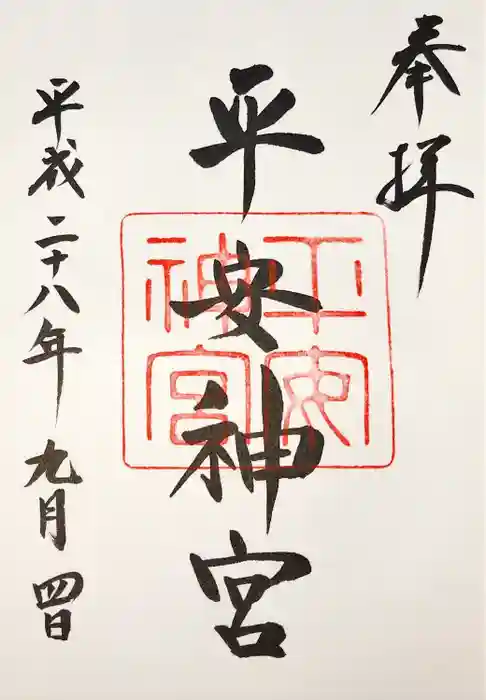 奉拝
平安神宮
平安神宮
平成二十八年九月四日